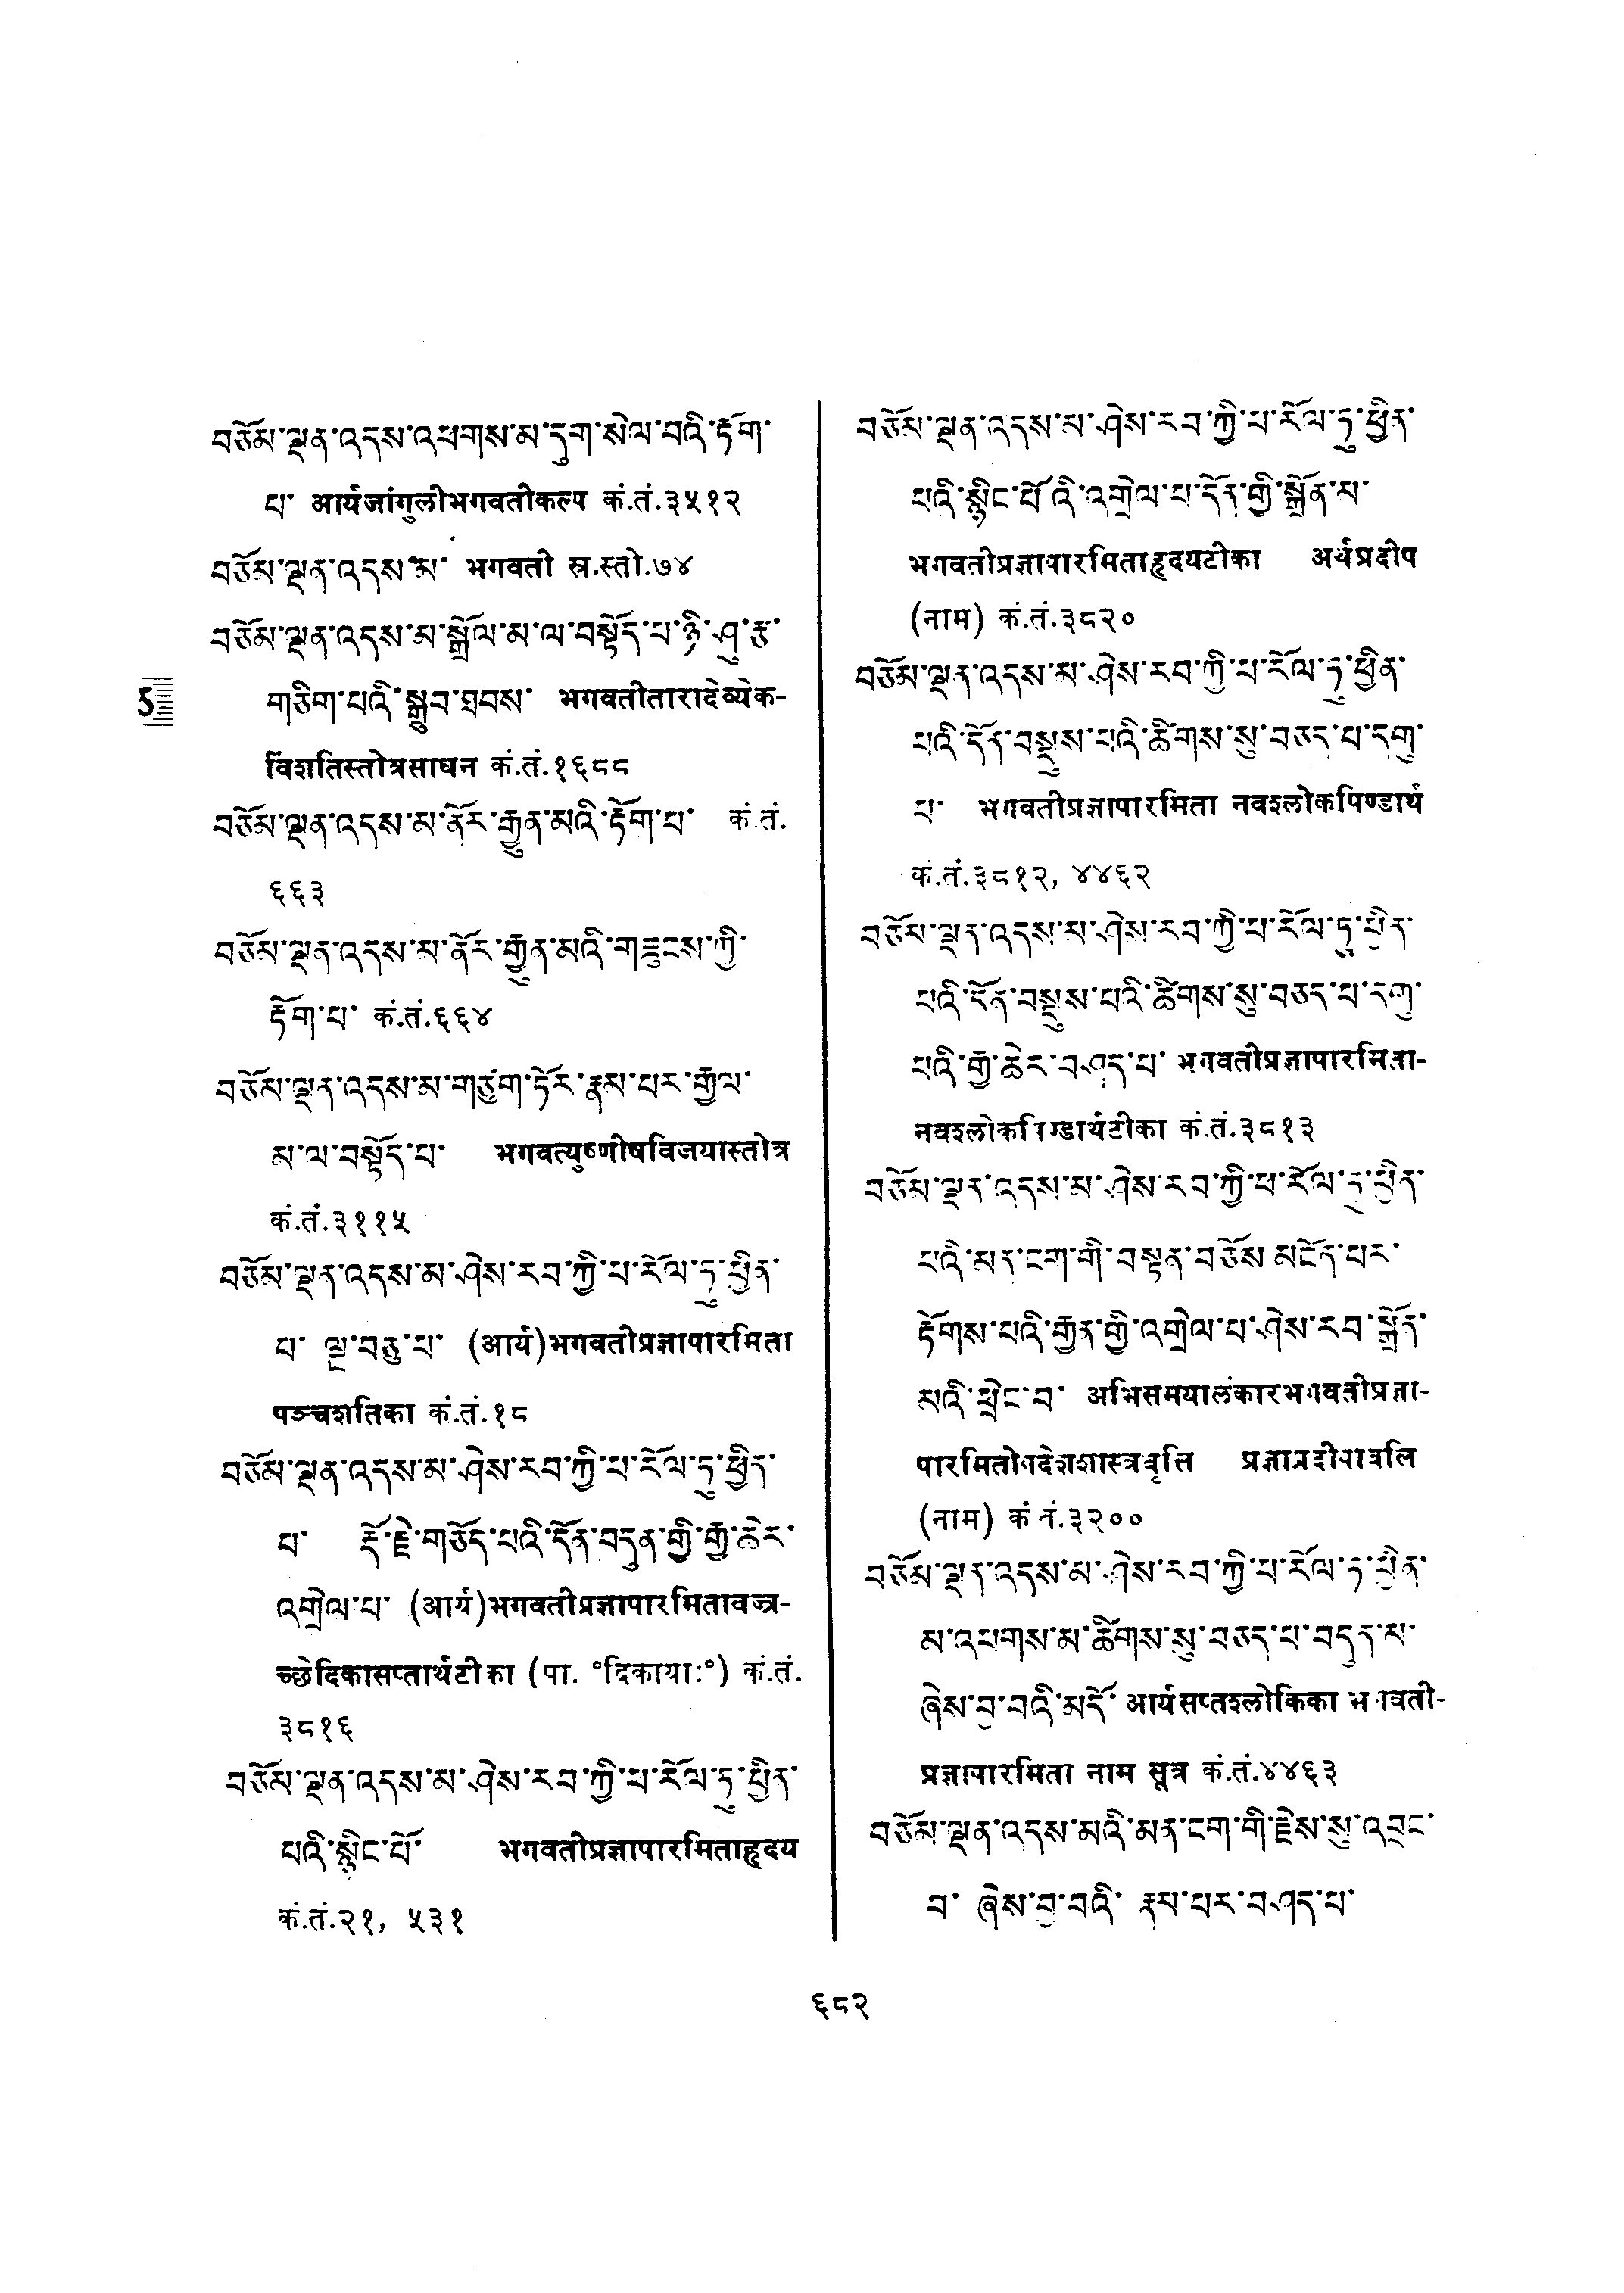 བཅོམ་ལྡན་འདས་འཕགས་མ་དུག་སེལ་བའི་རྟོག་
པ་ आर्यजांगुलीभगवतीकल्प कं.तं.३५१२
བཅོམ་ལྡན་འདས་མ་ भगवती स्र.स्तो.७४
བཅོམ་ལྡན་འདས་མ་སྒྲོལ་མ་ལ་བསྟོད་པ་ཉི་ཤུ་རྩ་
གཅིག་པའི་སྒྲུབ་ཐབས་ भगवतीतारादेव्येक-
विंशतिस्तोत्रसाधन कं.तं.१६८८
བཅོམ་ལྡན་འདས་མ་ནོར་རྒྱུན་མའི་རྟོག་པ་ कं.तं.
६६३
བཅོམ་ལྡན་འདས་མ་ནོར་རྒྱུན་མའི་གཟུངས་ཀྱི་
རྟོག་པ་ कं.तं.६६४
བཅོམ་ལྡན་འདས་མ་གཙུག་ཏོར་རྣམ་པར་རྒྱལ་
མ་ལ་བསྟོད་པ་ भगवत्युष्णीषविजयास्तोत्र
कं.तं.३११५
བཅོམ་ལྡན་འདས་མ་ཤེས་རབ་ཀྱི་པ་རོལ་ཏུ་ཕྱིན་
པ་ ལྔ་བཅུ་པ་ (आर्य)भगवतीप्रज्ञापारमिता
पञ्चशतिका कं.तं.१८
བཅོམ་ལྡན་འདས་མ་ཤེས་རབ་ཀྱི་པ་རོལ་ཏུ་ཕྱིན་
པ་ རྡོ་རྗེ་གཅོད་པའི་དོན་བདུན་གྱི་རྒྱ་ཆེར་
འགྲེལ་པ་ (आर्य)भगवतीप्रज्ञापारमितावज्र-
च्छेदिकासप्तार्थटीका (पा. °दिकायाः°) कं.तं.
३८१६
བཅོམ་ལྡན་འདས་མ་ཤེས་རབ་ཀྱི་པ་རོལ་ཏུ་ཕྱིན་
པའི་སྙིང་པོ་ भगवतीप्रज्ञापारमिताहृदय
कं.तं.२१, ५३१
བཅོམ་ལྡན་འདས་མ་ཤེས་རབ་ཀྱི་པ་རོལ་ཏུ་ཕྱིན་
པའི་སྙིང་པོ་འི་འགྲེལ་པ་དོན་གྱི་སྒྲོན་མ་
भगवतीप्रज्ञापारमिताहृदयटीका अर्थप्रदीप
(नाम) कं.तं.३८२०
བཅོམ་ལྡན་འདས་མ་ཤེས་རབ་ཀྱི་པ་རོལ་ཏུ་ཕྱིན་
པའི་དོན་བསྡུས་པའི་ཚིགས་སུ་བཅད་པ་དགུ་
པ་ भगवतीप्रज्ञापारमिता नवश्लोकपिण्डार्थ
कं.तं.३८१२, ४४६२
བཅོམ་ལྡན་འདས་མ་ཤེས་རབ་ཀྱི་པ་རོལ་ཏུ་ཕྱིན་
པའི་དོན་བསྡུས་པའི་ཚིགས་སུ་བཅད་པ་དགུ་
པའི་རྒྱ་ཆེར་བཤད་པ་ भगवतीप्रज्ञापारमिता-
नवश्लोकपिण्डार्थटीका कं.तं.३८१३
བཅོམ་ལྡན་འདས་མ་ཤེས་རབ་ཀྱི་ཕ་རོལ་ཏུ་ཕྱིན་
པའི་མན་ངག་གི་བསྟན་བཅོས་མངོན་པར་
རྟོགས་པའི་རྒྱན་གྱི་འགྲེལ་པ་ཤེས་རབ་སྒྲོན་
མའི་ཕྲེང་བ་ अभिसमयालंकारभगवतीप्रज्ञा-
पारमितोपदेशशास्त्रवृत्ति प्रज्ञाप्रदीपावलि
(नाम) कं.तं.३२००
བཅོམ་ལྡན་འདས་མ་ཤེས་རབ་ཀྱི་པ་རོལ་ཏུ་ཕྱིན་
མ་འཕགས་མ་ཚིགས་སུ་བཅད་པ་བདུན་མ་
ཞེས་བྱ་བའི་མདོ་ आर्यसप्तश्लोकिका भगवती-
प्रज्ञापारमिता नाम सूत्र कं.तं.४४६३
བཅོམ་ལྡན་འདས་མའི་མན་ངག་གི་རྗེས་སུ་འབྲང་
བ་ ཞེས་བྱ་བའི་ རྣམ་པར་བཤད་པ་
६८२